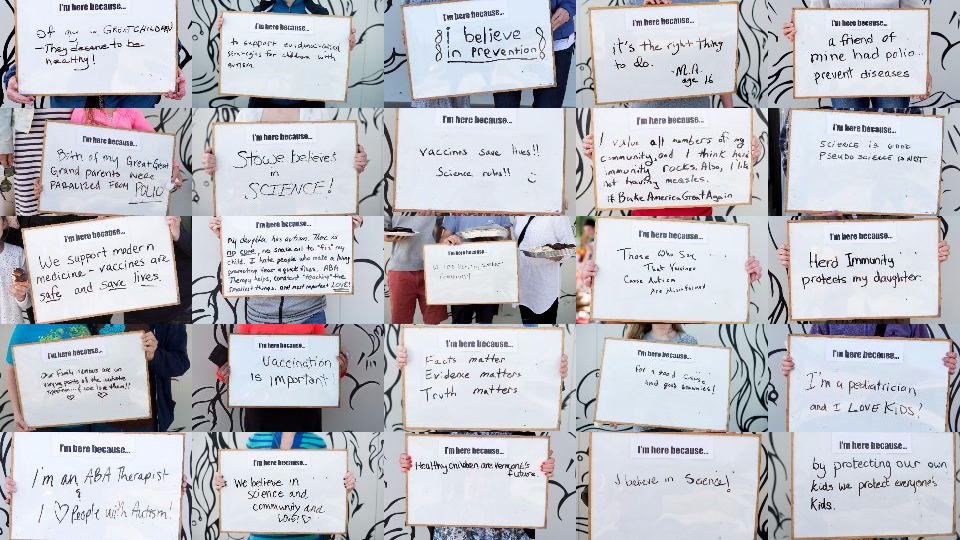 I'm here because...
of my GREATCHILDREN
-They deserve to be
healthy!
I'm here because...
to support evidence-based
strategies for children with
autism.
I'm here because...
i believe
in prevention
I'm here because...
it's the right thing
to do.
-M.A.
age 16
I'm here because...
a friend of
mine had polio..
prevent diseases
I'm here because...
Both of my Great Great
Grand parents were
PARALIZED FROM POLIO
I'm here because...
Stowe believes
in
SCIENCE!
I'm here because...
vaccines save lives!!
Science rules!!
I'm here because...
I value all members of my
community, and I think herd
immunity rocks. Also, I like
not having measles.
#BakeAmericaGreatAgain
I'm here because...
SCIENCE IS GOOD
PSEUDO SCIENCE IS NOT
I'm here because...
We support modern
medicine - vaccines are
safe and save lives.
I'm here because...
My daughter has autism. There is
no cure, no snake oil to "fix" my
child. I hate people who make a living
promoting fear & quick fixes. ABA
Therapy helps, constant teaching the
smallest things, and most important LOVE!
I'm here because...
I'm here because...
Those Who Say
That Vaccines
Cause Autism
Are
I'm here because...
Herd Immunity
protects my daughter.
I'm here because...
Our family
I'm here because...
Vaccination
is important
I'm here because...
Facts matter
Evidence matters
Truth matters
I'm here because...
For a good cause
and good brownies!
I'm here because...
I'm a pediatrician
and I LOVE KIDS!
I'm here because...
I'm an ABA Therapist
&
I ♡ People with Autism!
I'm here because...
We believe in
science and
community and
LOVE! ♡
I'm here because...
Healthy children are Vermont's
future.
I'm here because...
I believe in Science!
I'm here because...
by protecting our own
kids we protect everyone's
kids.